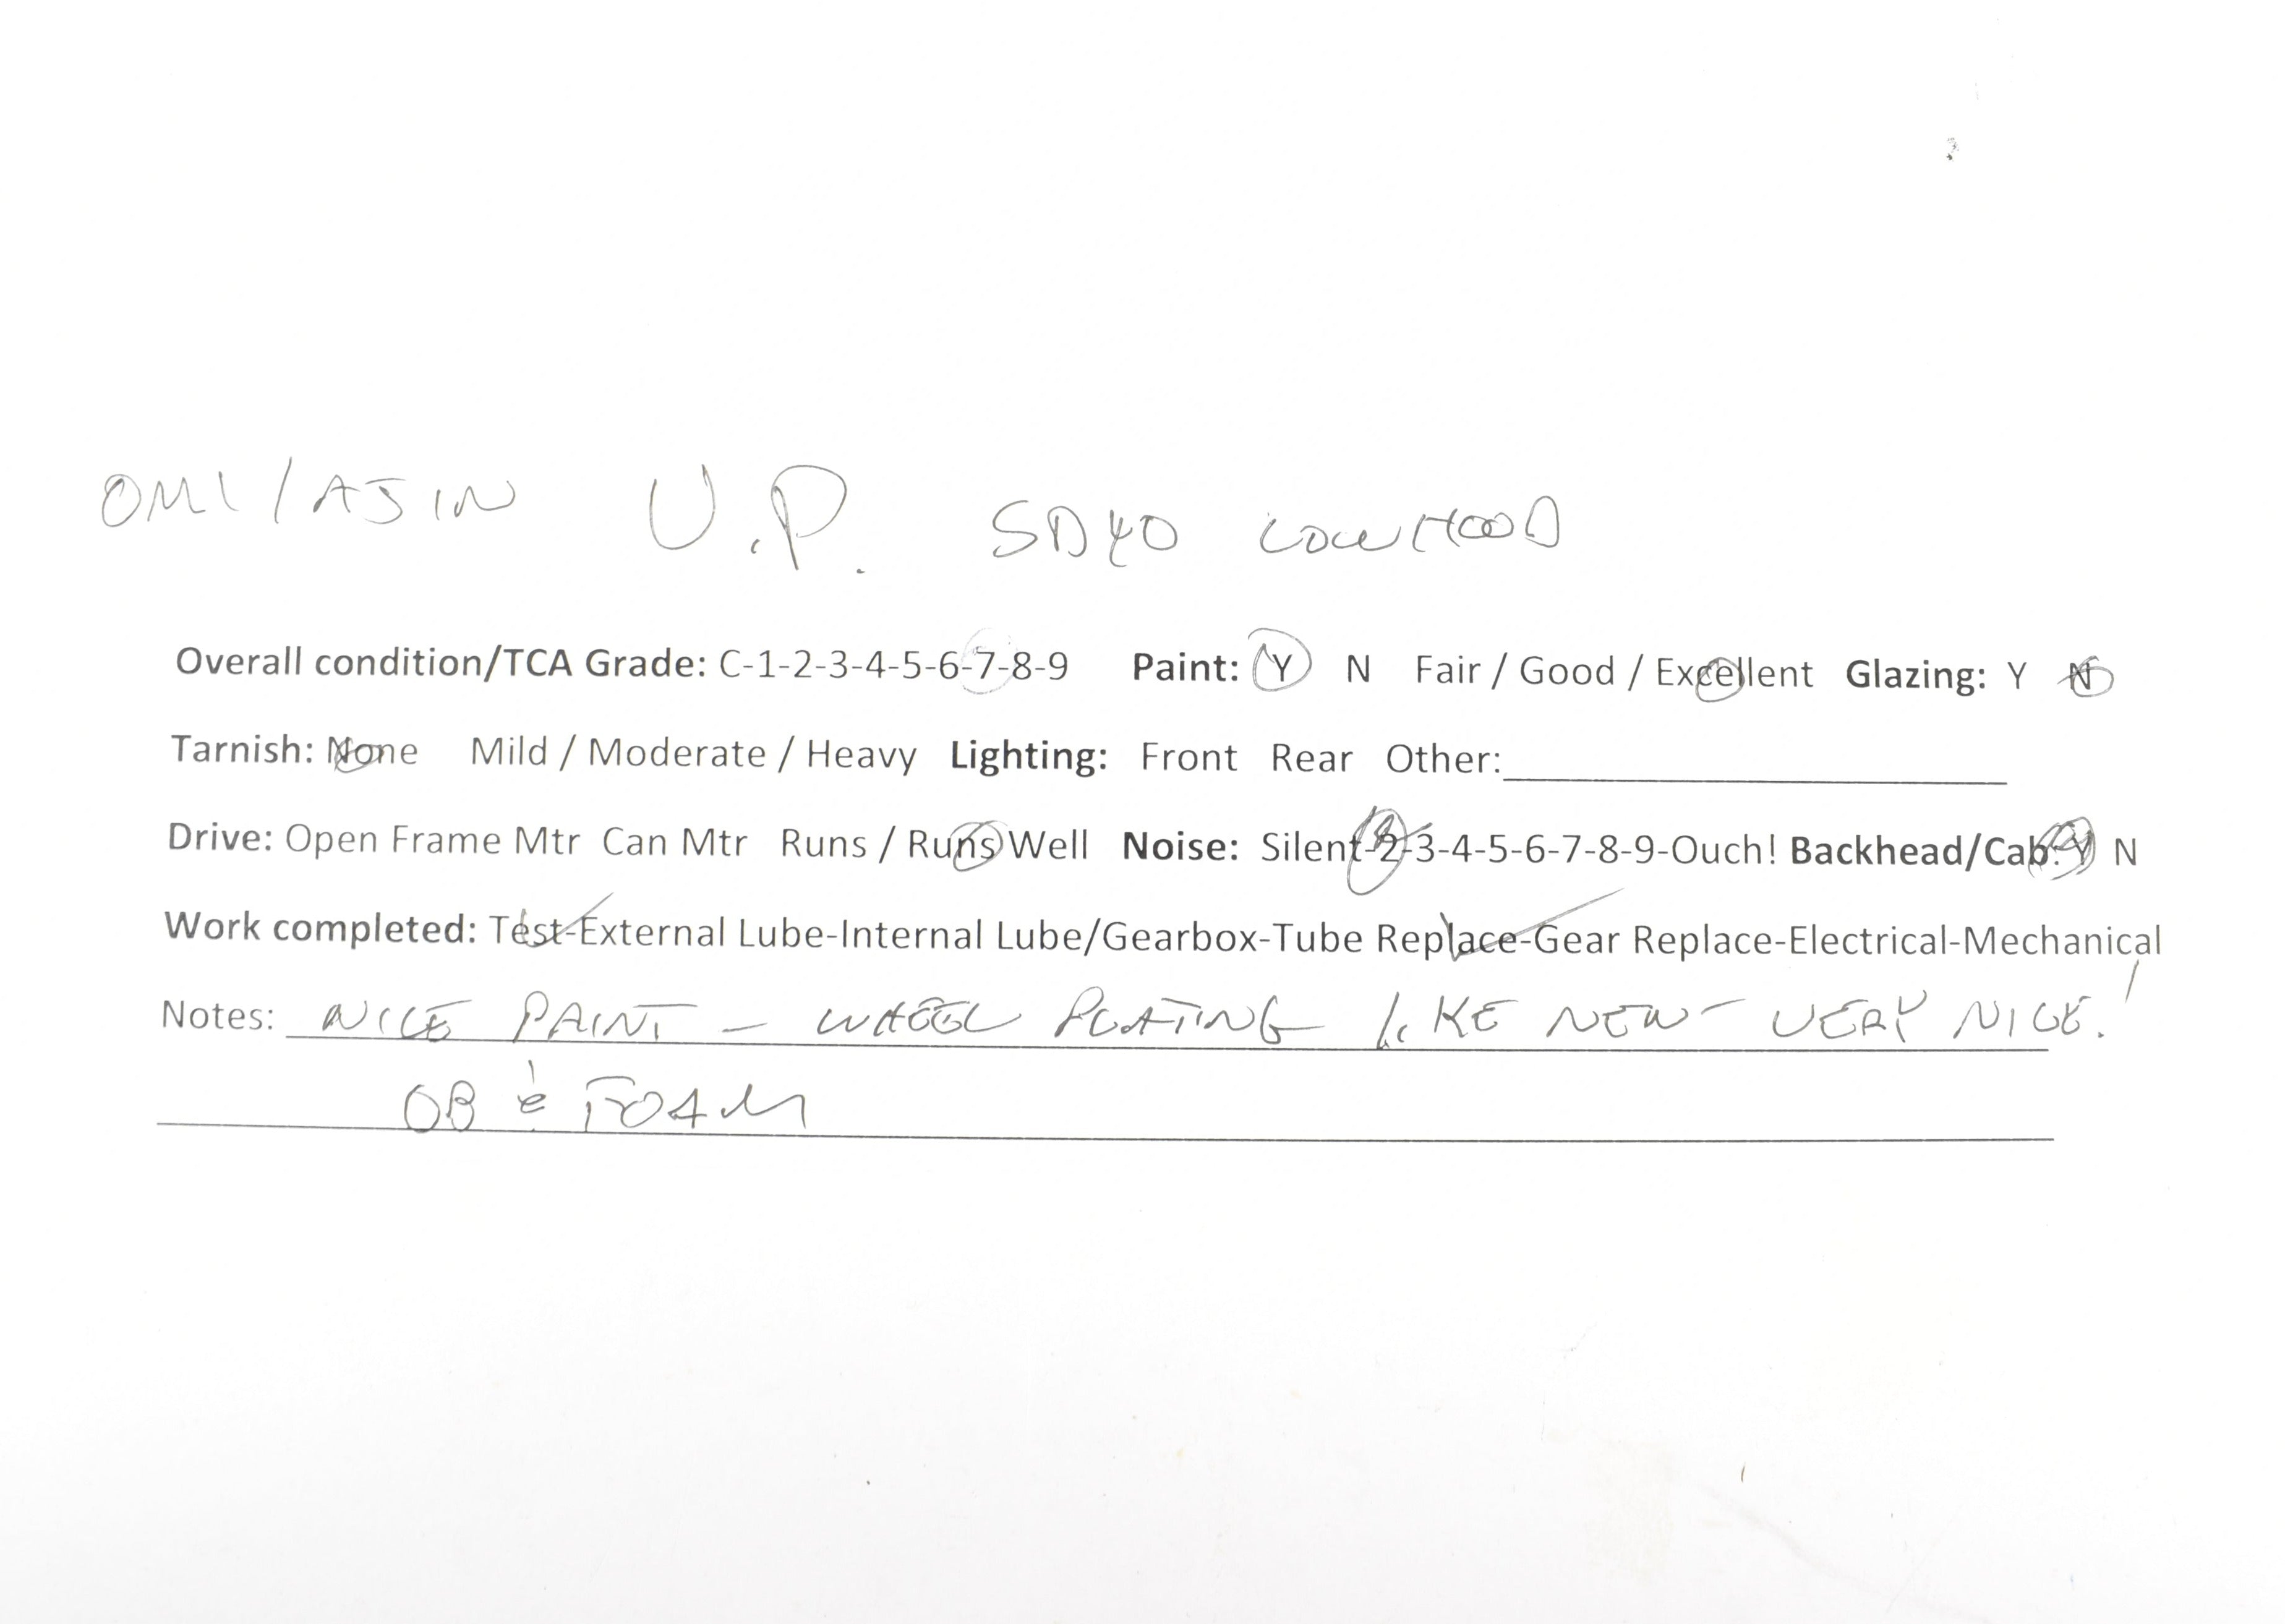 OMI/AJIN U.P. SD40 LOW HOOD
Overall condition/TCA Grade: C-1-2-3-4-5-6-7-8-9 Paint: Y N Fair / Good / Excellent Glazing: Y N
Tarnish: None Mild / Moderate / Heavy Lighting: Front Rear Other:
Drive: Open Frame Mtr Can Mtr Runs / Runs Well Noise: Silent-2-3-4-5-6-7-8-9-Ouch! Backhead/Cab: Y N
Work completed: Test-External Lube-Internal Lube/Gearbox-Tube Replace-Gear Replace-Electrical-Mechanical
Notes: NICE PAINT - WHEEL PLATING LIKE NEW - VERY NICE!
OB & FOAM